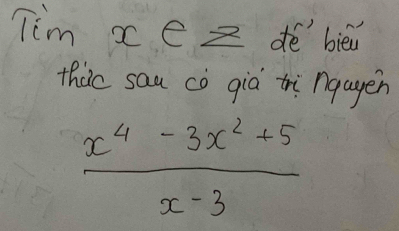 Tìm x ∈ Z để biểu
thức sau có giá trị nguyên
x⁴ - 3x² + 5
x - 3